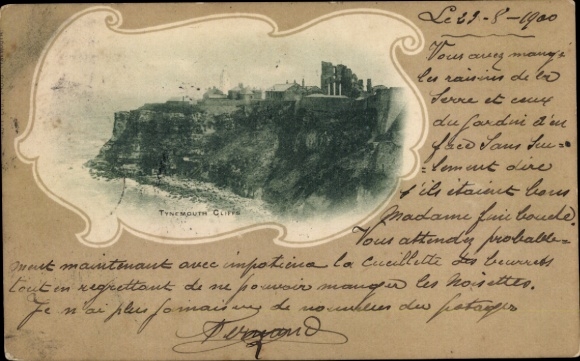 Le 23-8-1900
Vous avez mangé
les raisins de la
Serre et ceux
du Jardin d'en
face Sans Seu=
=lement dire
s'ils étaient bons
Madame fine bouche.
Vous attendez probable=
ment maintenant avec impatience la cueillette des beurrés
tout en regrettant de ne pouvoir manger les Noisettes.
Je n'ai plus jamais eu de nouvelles du potager
Fernand
TYNEMOUTH CLIFFS